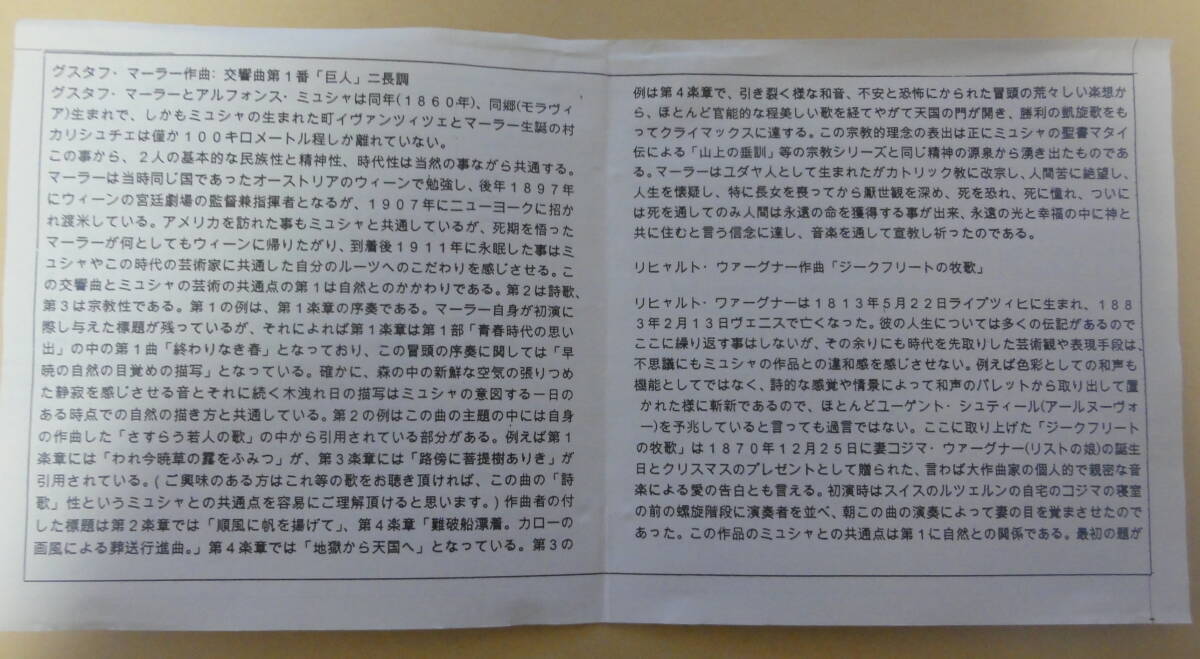 グスタフ・マーラー作曲: 交響曲第1番「巨人」ニ長調
グスタフ・マーラーとアルフォンス・ミュシャは同年(1860年)、同郷(モラヴィ
ア)生まれで、しかもミュシャの生まれた町イヴァンツィツェとマーラー生誕の村
カリシュチェは僅か100キロメートル程しか離れていない。
この事から、2人の基本的な民族性と精神性、時代性は当然の事ながら共通する。
マーラーは当時同じ国であったオーストリアのウィーンで勉強し、後年1897年
にウィーンの宮廷劇場の監督兼指揮者となるが、1907年にニューヨークに招か
れ渡米している。アメリカを訪れた事もミュシャと共通しているが、死期を悟った
マーラーが何としてもウィーンに帰りたがり、到着後1911年に永眠した事はミ
ュシャやこの時代の芸術家に共通した自分のルーツへのこだわりを感じさせる。こ
の交響曲とミュシャの芸術の共通点の第1は自然とのかかわりである。第2は詩歌、
第3は宗教性である。第1の例は、第1楽章の序奏である。マーラー自身が初演に
際し与えた標題が残っているが、それによれば第1楽章は第1部「青春時代の思い
出」の中の第1曲「終わりなき春」となっており、この冒頭の序奏に関しては「早
暁の自然の目覚めの描写」となっている。確かに、森の中の新鮮な空気の張りつめ
た静寂を感じさせる音とそれに続く木洩れ日の描写はミュシャの意図する一日の
ある時点での自然の描き方と共通している。第2の例はこの曲の主題の中には自身
の作曲した「さすらう若人の歌」の中から引用されている部分がある。例えば第1
楽章には「われ今暁草の露をふみつ」が、第3楽章には「路傍に菩提樹ありき」が
引用されている。(ご興味のある方はこれ等の歌をお聴き頂ければ、この曲の「詩
歌」性というミュシャとの共通点を容易にご理解頂けると思います。)作曲者の付
した標題は第2楽章では「順風に帆を揚げて」、第4楽章「難破船漂着。カローの
画風による葬送行進曲。」第4楽章では「地獄から天国へ」となっている。第3の
例は第4楽章で、引き裂く様な和音、不安と恐怖にかられた冒頭の荒々しい楽想か
ら、ほとんど官能的な程美しい歌を経てやがて天国の門が開き、勝利の凱旋歌をも
ってクライマックスに達する。この宗教的理念の表出は正にミュシャの聖書マタイ
伝による「山上の垂訓」等の宗教シリーズと同じ精神の源泉から湧き出たものであ
る。マーラーはユダヤ人として生まれたがカトリック教に改宗し、人間苦に絶望し、
人生を懐疑し、特に長女を喪ってから厭世観を深め、死を恐れ、死に憧れ、ついに
は死を通してのみ人間は永遠の命を獲得する事が出来、永遠の光と幸福の中に神と
共に住むと言う信念に達し、音楽を通して宣教し祈ったのである。
リヒャルト・ウァーグナー作曲「ジークフリートの牧歌」
リヒャルト・ワァーグナーは1813年5月22日ライプツィヒに生まれ、188
3年2月13日ヴェニスで亡くなった。彼の人生については多くの伝記があるので
ここに繰り返す事はしないが、その余りにも時代を先取りした芸術観や表現手段は、
不思議にもミュシャの作品との違和感を感じさせない。例えば色彩としての和声も
機能としてではなく、詩的な感覚や情景によって和声のパレットから取り出して置
かれた様に斬新であるので、ほとんどユーゲント・シュティール(アールヌーヴォ
ー)を予兆していると言っても過言ではない。ここに取り上げた「ジークフリート
の牧歌」は1870年12月25日に妻コジマ・ウァーグナー(リストの娘)の誕生
日とクリスマスのプレゼントとして贈られた、言わば大作曲家の個人的で親密な音
楽による愛の告白とも言える。初演時はスイスのルツェルンの自宅のコジマの寝室
の前の螺旋階段に演奏者を並べ、朝この曲の演奏によって妻の目を覚まさせたので
あった。この作品のミュシャとの共通点は第1に自然との関係である。最初の題が